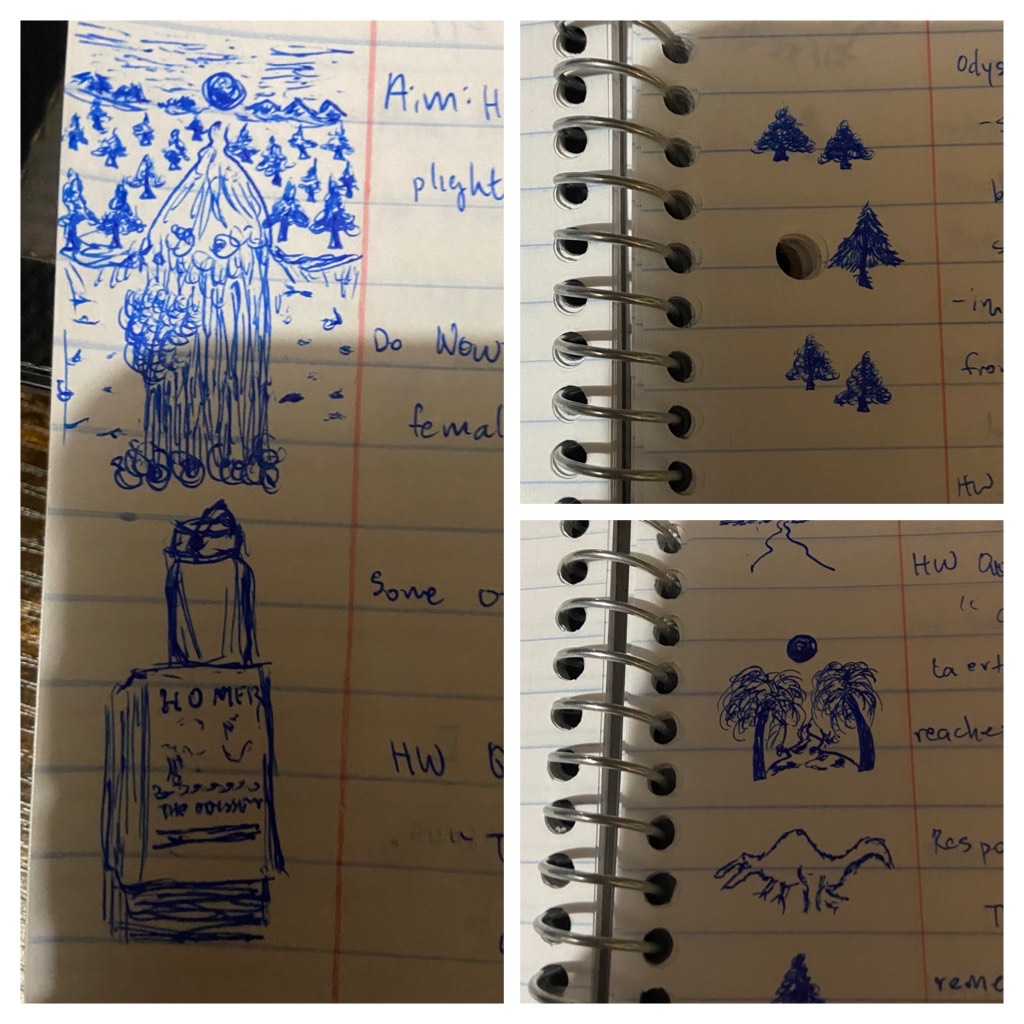 Aim: H
plight
Do Now
femal
Some o
HOMER
THE ODYSSEY
HW Q
" T
Odys
b
s
-in
fro
HW
HW Qu
" c
Laert
reache
Respo
T
reme